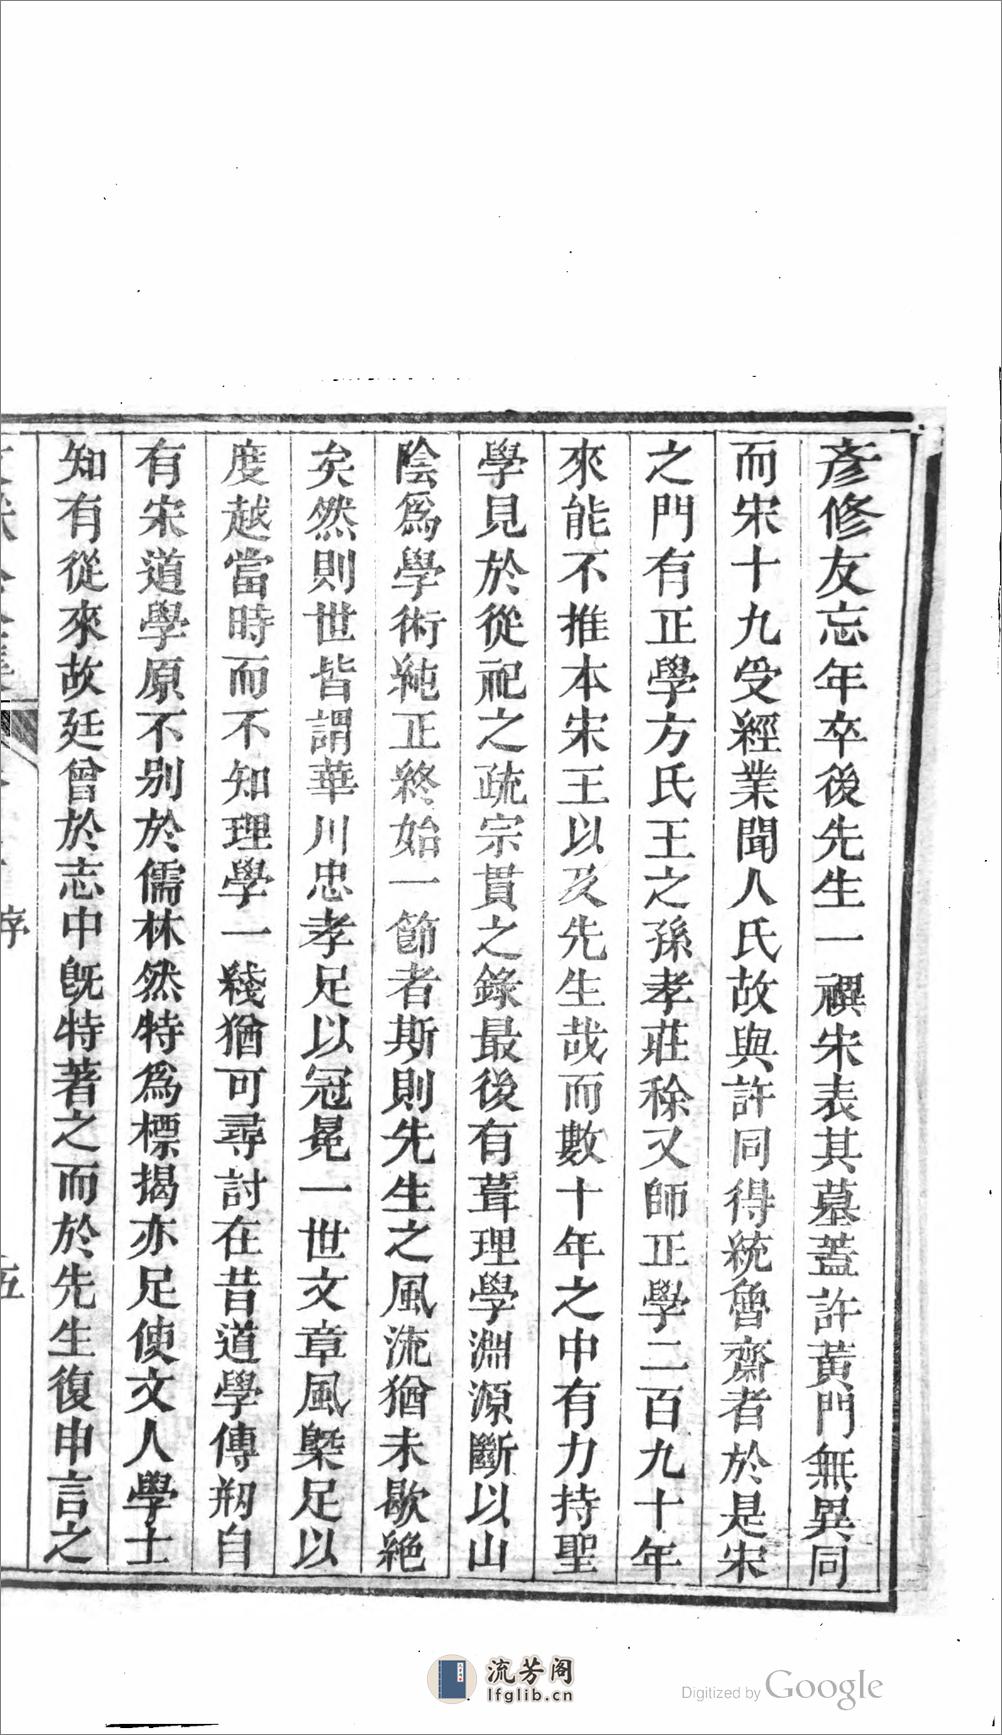 彥修友忘年卒後先生一禩宋表其墓蓋許黃門無異同
而宋十九受經業聞人氏故與許同得統魯齋者於是宋
之門有正學方氏王之孫孝莊稌又師正學二百九十年
來能不推本宋王以及先生哉而數十年之中有力持聖
學見於從祀之疏宗貫之錄最後有葺理學淵源斷以山
陰爲學術純正終始一節者斯則先生之風流猶未歇絶
矣然則世皆謂華川忠孝足以冠冕一世文章風槩足以
度越當時而不知理學一綫猶可尋討在昔道學傳剏自
有宋道學原不别於儒林然特爲標揭亦足使文人學士
知有從來故廷曾於志中旣特著之而於先生復申言之
序
五
流芳阁
lfglib.cn
Digitized by Google